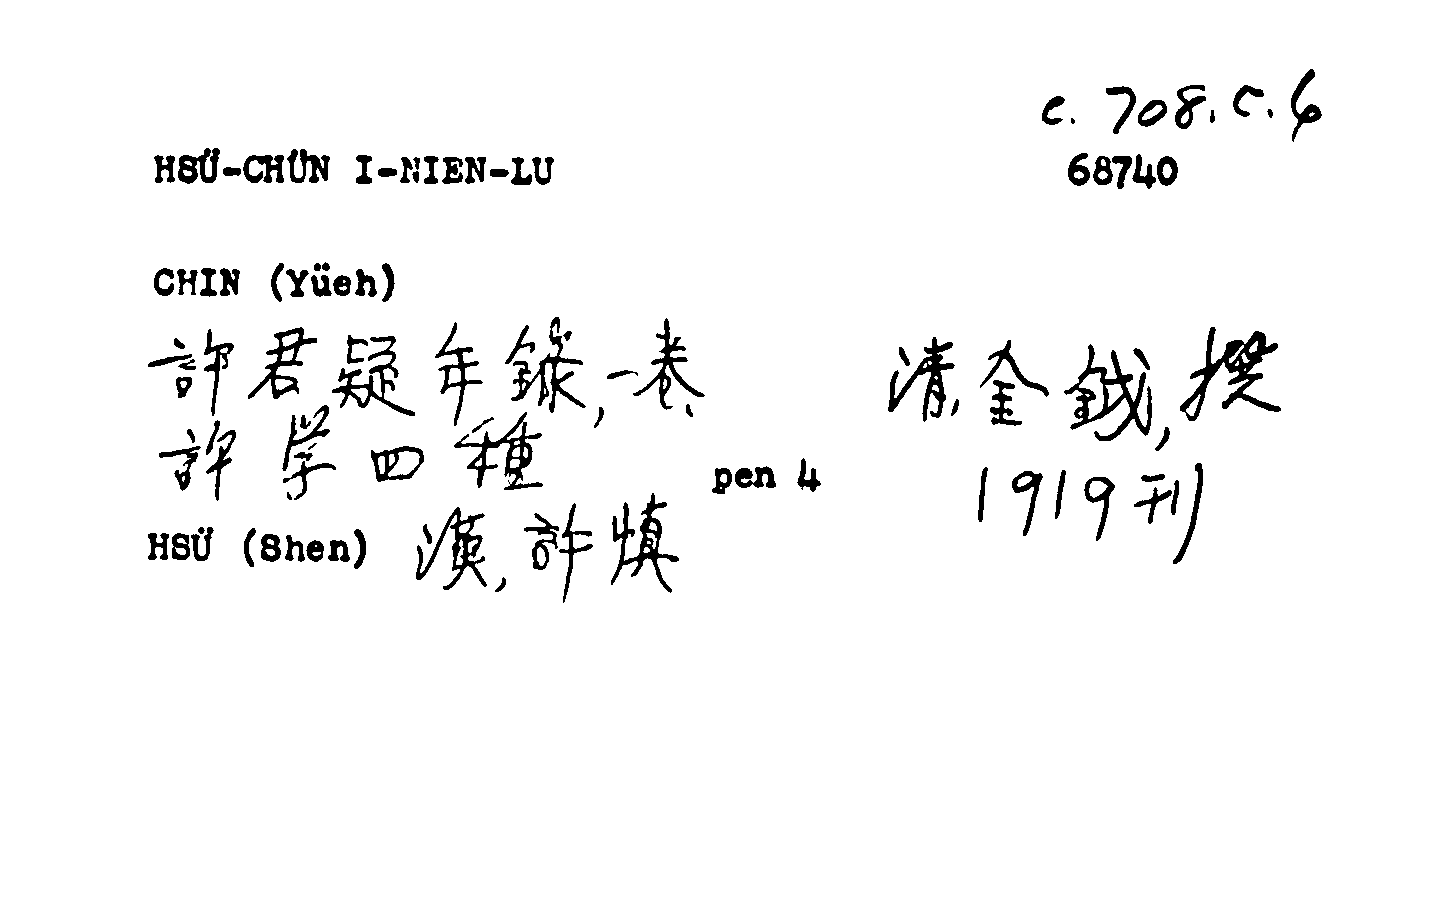 c. 708. c. 6
HSÜ-CHÜN I-NIEN-LU 68740
CHIN (Yüeh)
許君疑年錄, 一卷、 清, 金鉞, 撰
許学四種 pen 4 1919刊
HSÜ (Shen) 漢, 許慎